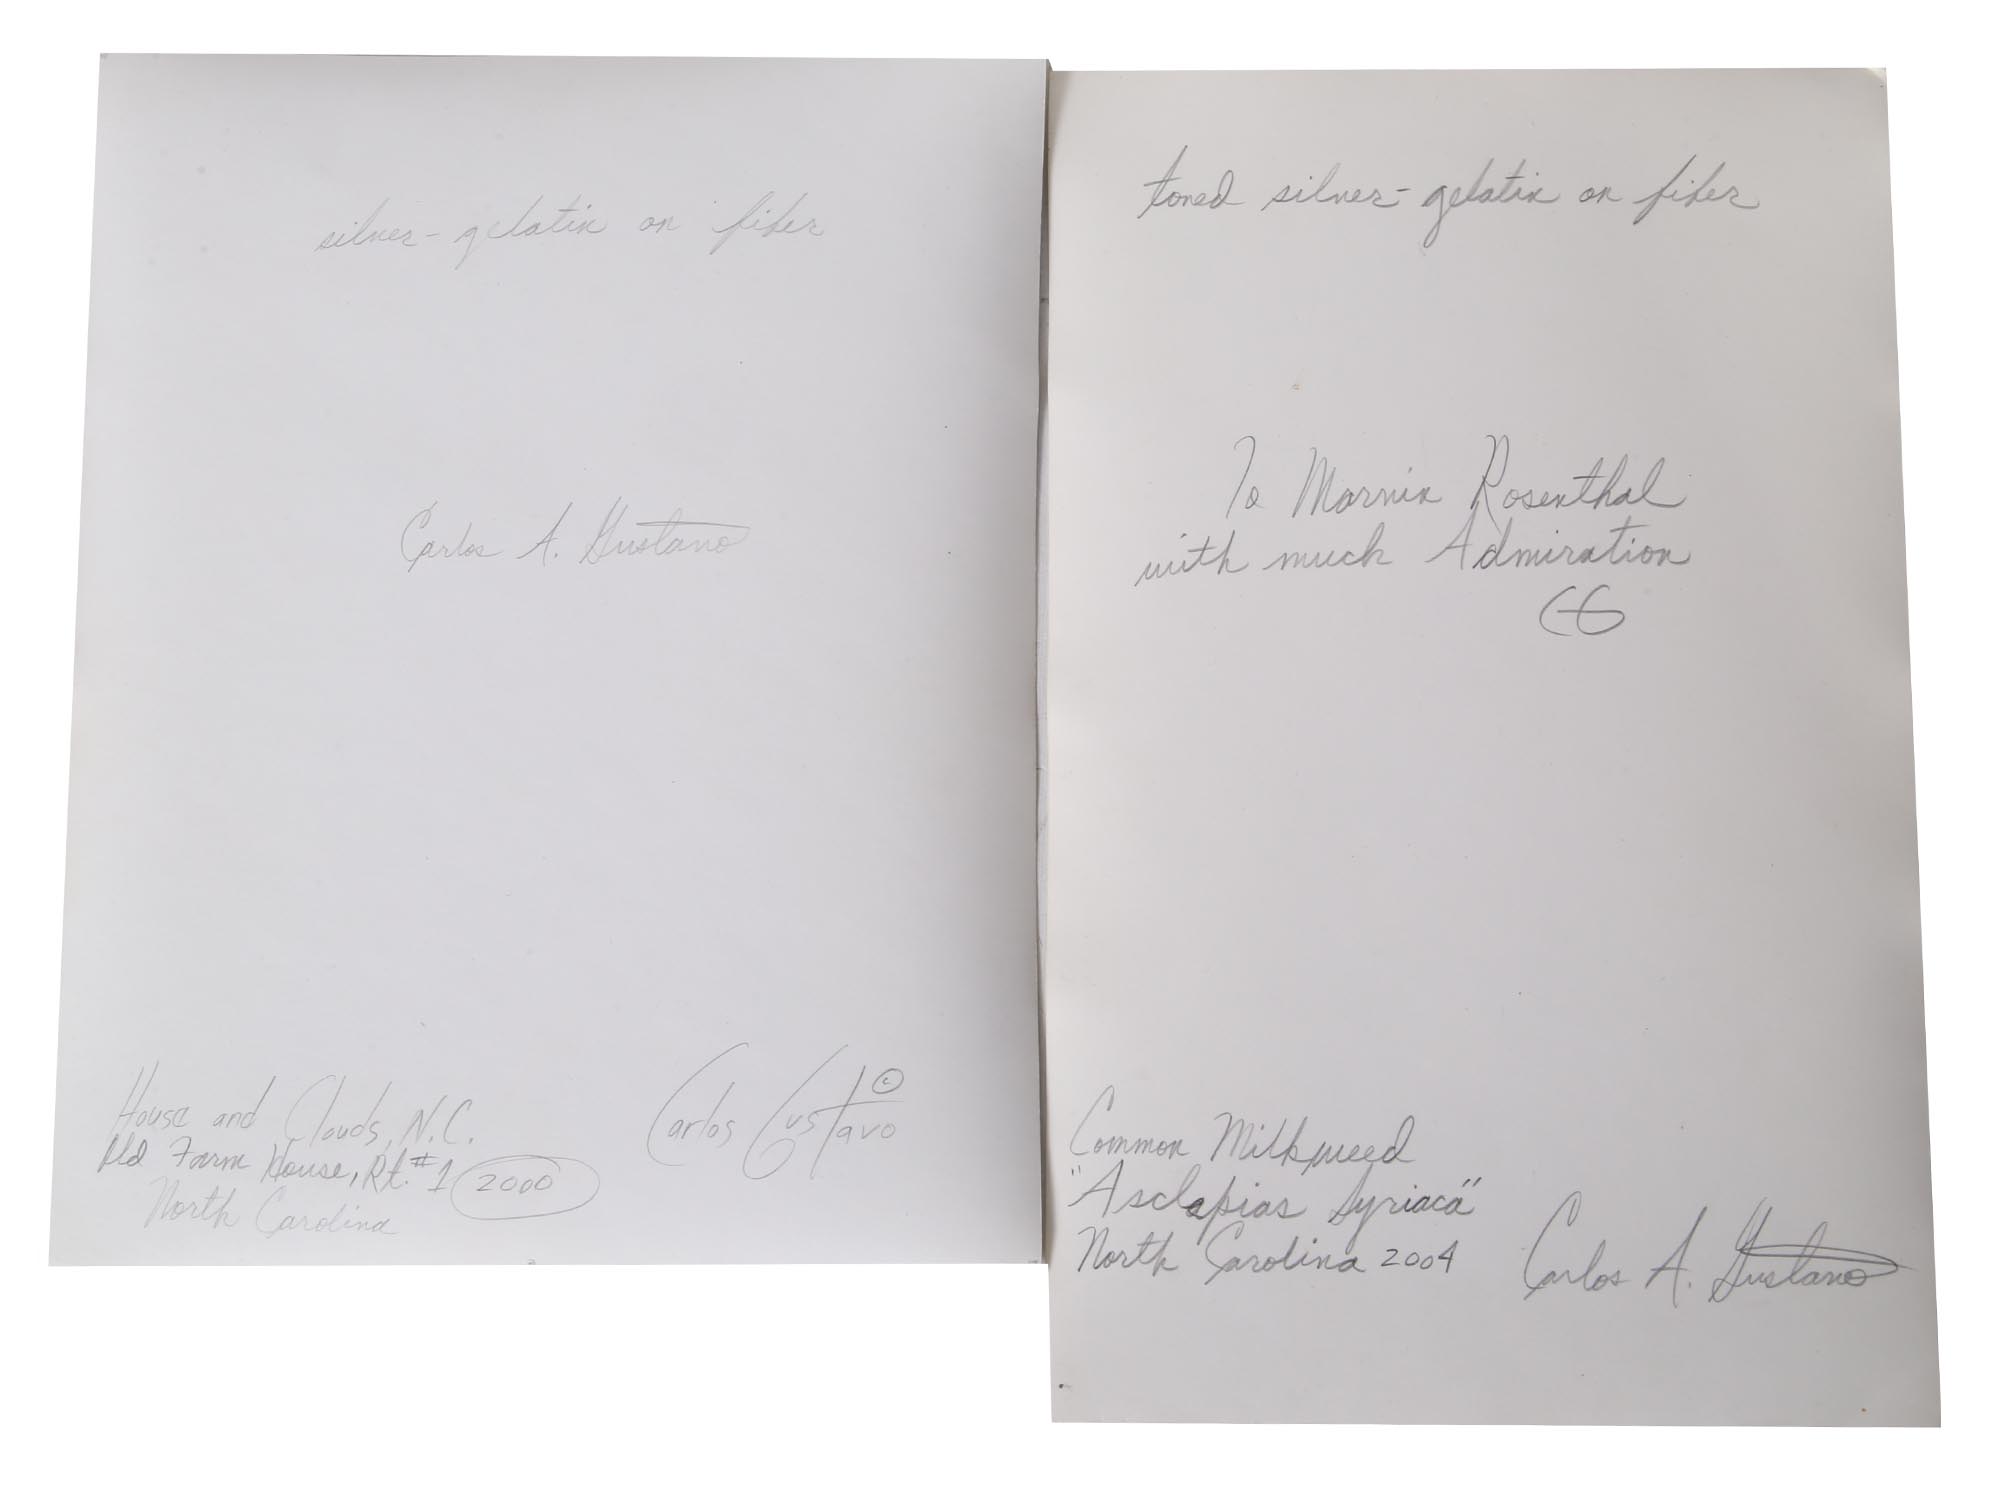 silver-gelatin on fiber
Carlos A. Gustavo
House and Clouds, N.C.
Old Farm House, Rt. #1 2000
North Carolina
Carlos Gustavo ©
toned silver-gelatin on fiber
To Marvin Rosenthal
with much Admiration
CG
Common Milkweed
"Asclepias Syriaca"
North Carolina 2004
Carlos A. Gustavo